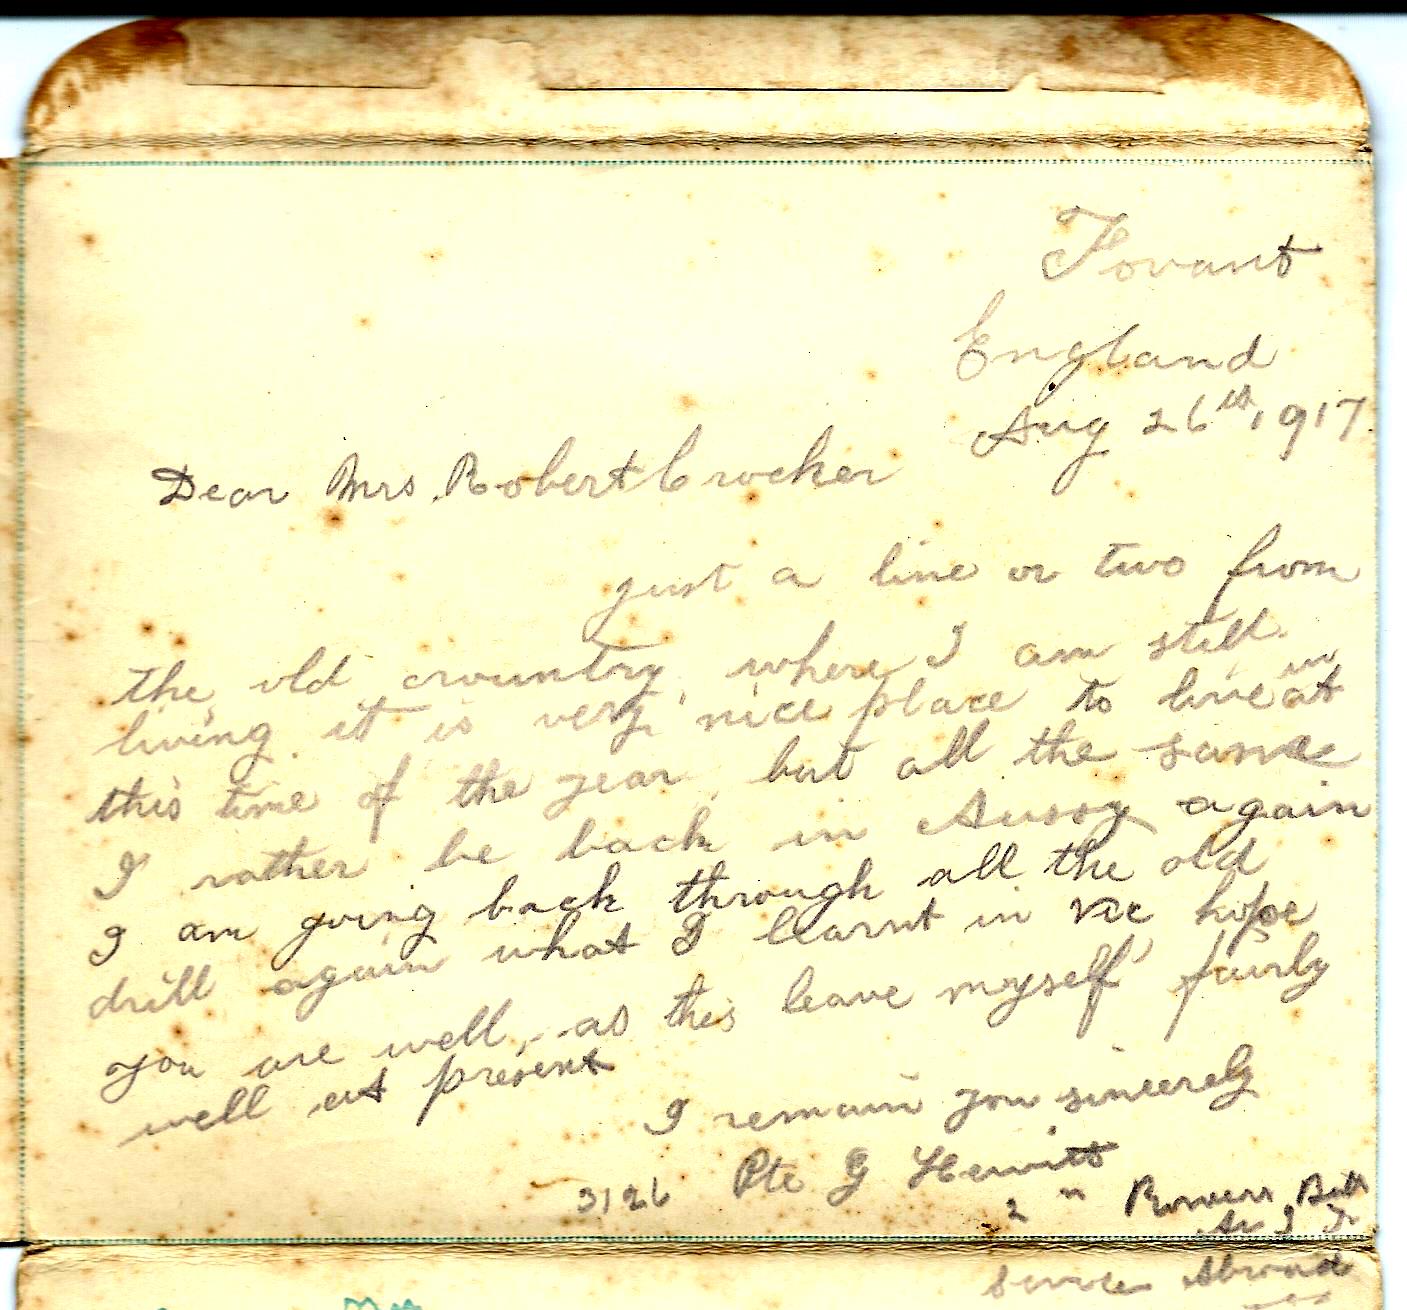 Fovant
England
Aug 26th, 1917
Dear Mrs. Robert Crocker
just a line or two from
the old crountry, where I am still
living. it is very nice place to live in at
this time of the year, but all the same
I rather be back in Aussy again
I am going back through all the old
drill again what I learnt in Vic hope
you are well, as this leave myself fairly
well at present
I remain you sincerely
3126 Pte G Hewitt
2 " Pioneers Batt
A. I. F.
Service Abroad